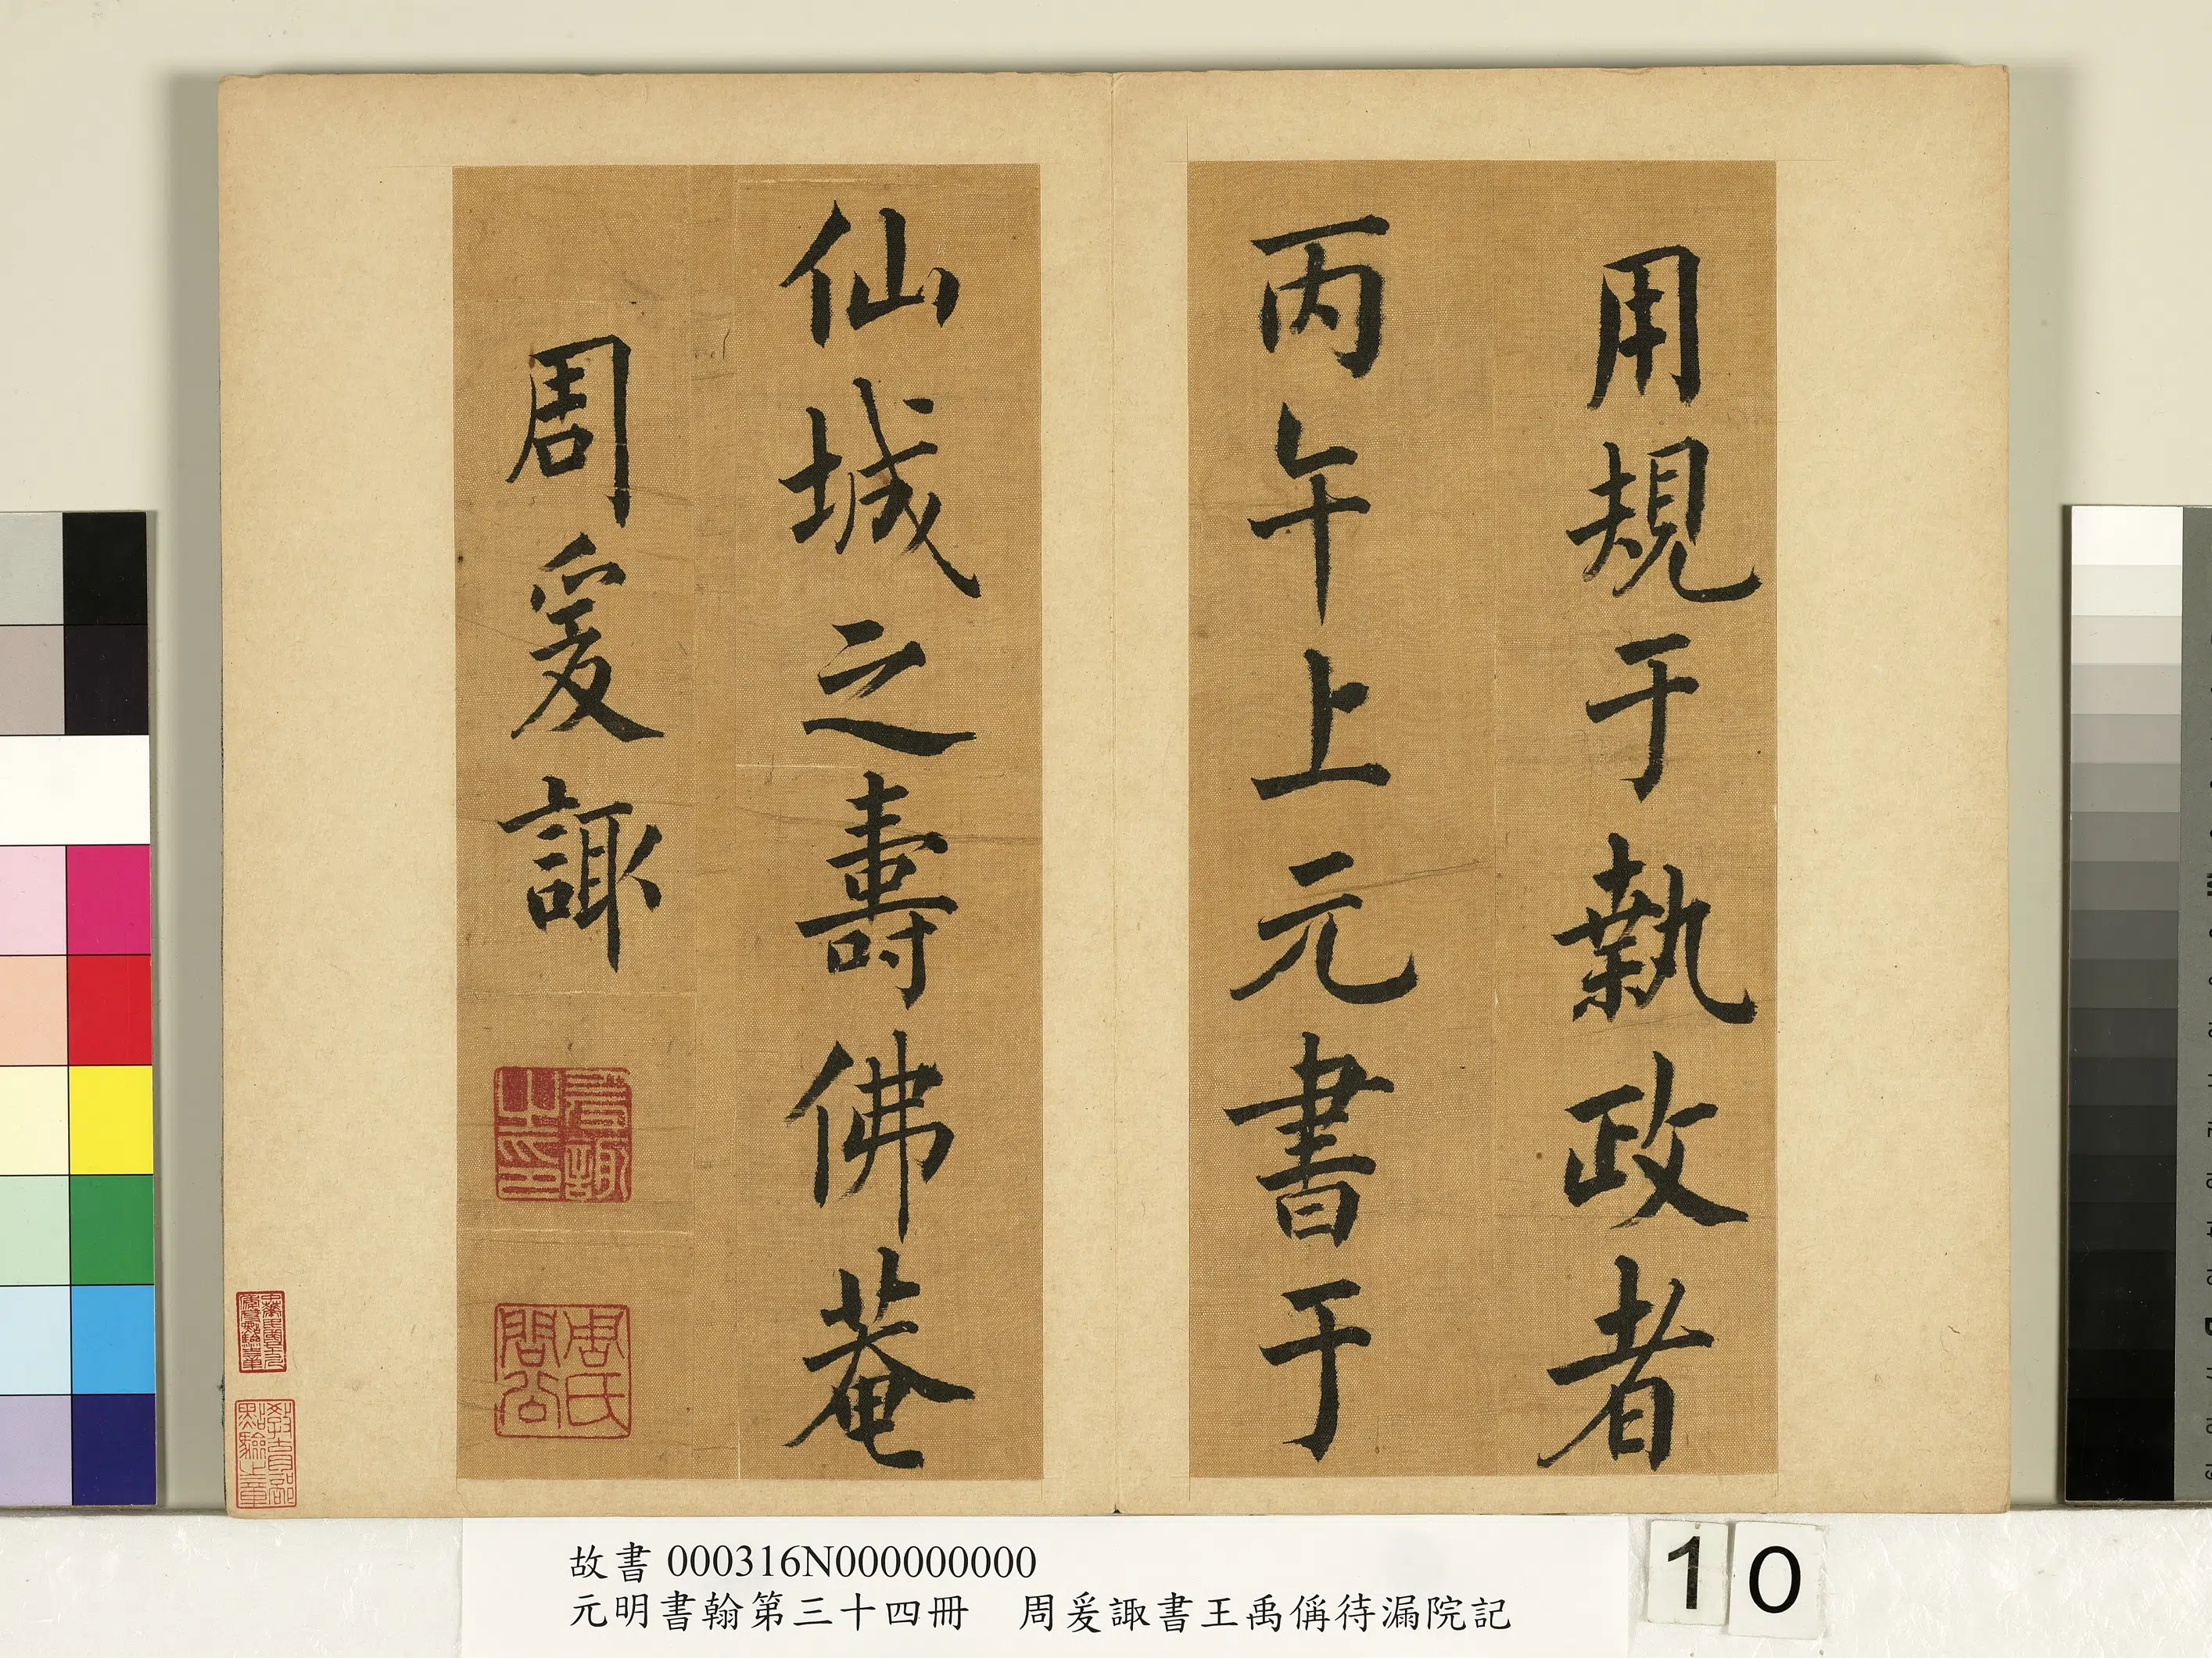 用規于執政者
丙午上元書于
仙城之壽佛菴
周爰諏
爰諏之印
周氏問公
教育部點驗之章
故書 000316N000000000
元明書翰第三十四冊 周爰諏書王禹偁待漏院記
10